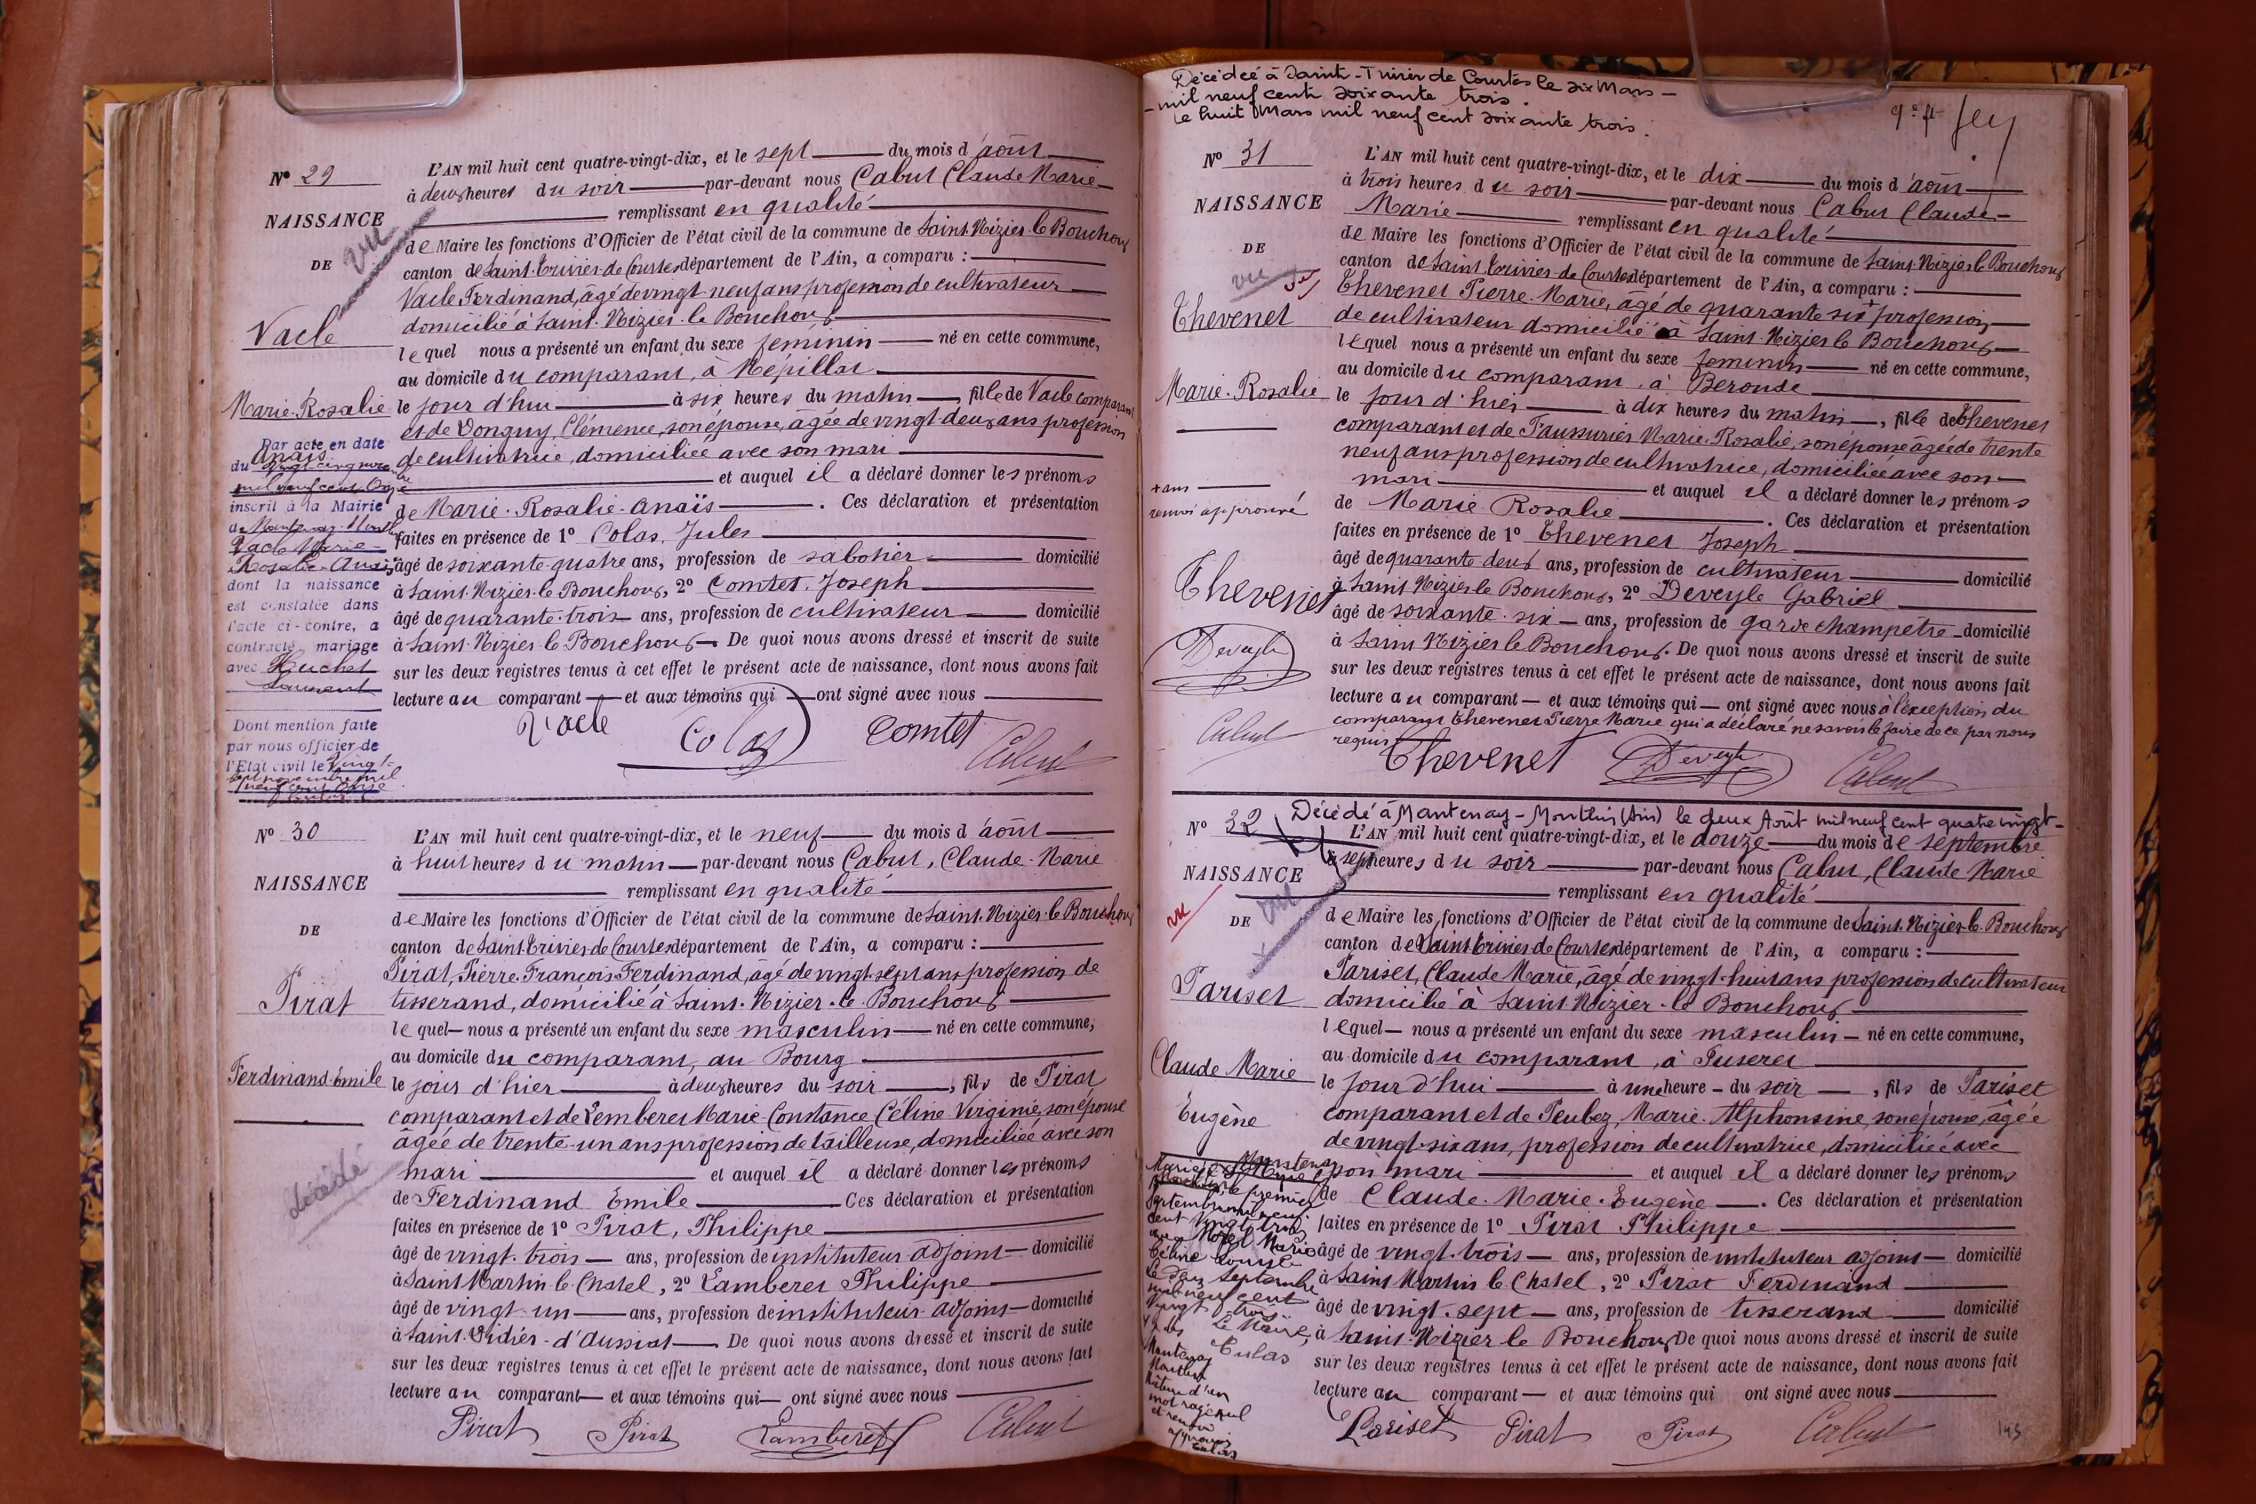 N° 29
NAISSANCE
DE
Vacle
Marie-Rosalie
Anaïs
vu
Par acte en date
du vingt cinq novembre
mil neuf cent onze
inscrit à la Mairie
de Mantenay-Montlin
Vacle Marie-
Rosalie-Anaïs
dont la naissance
est constatée dans
l'acte ci-contre, a
contracté mariage
avec Huchet
Laurent
Dont mention faite
par nous officier de
l'Etat civil le vingt-
sept novembre mil
neuf cent onze
L'AN mil huit cent quatre-vingt-dix, et le sept du mois d'août
à deux heures du soir par-devant nous Cabut Claude Marie
remplissant en qualité
de Maire les fonctions d'Officier de l'état civil de la commune de Saint-Nizier-le-Bouchoux
canton de Saint-Trivier-de-Courtes département de l'Ain, a comparu :
Vacle Ferdinand, âgé de vingt neuf ans profession de cultivateur
domicilié à Saint-Nizier-le-Bouchoux
lequel nous a présenté un enfant du sexe feminin né en cette commune,
au domicile du comparant, à Népillat
le jour d'hui à six heures du matin, fille de Vacle comparant
et de Donguy, Clémence, son épouse, âgée de vingt deux ans profession
de cultivatrice, domiciliée avec son mari
et auquel il a déclaré donner les prénoms
de Marie-Rosalie-Anaïs. Ces déclaration et présentation
faites en présence de 1° Colas, Jules
âgé de soixante-quatre ans, profession de sabotier domicilié
à Saint-Nizier-le-Bouchoux, 2° Comtet, Joseph
âgé de quarante-trois ans, profession de cultivateur domicilié
à Saint-Nizier-le-Bouchoux De quoi nous avons dressé et inscrit de suite
sur les deux registres tenus à cet effet le présent acte de naissance, dont nous avons fait
lecture au comparant et aux témoins qui ont signé avec nous
Vacle Colas Comtet Cabut
N° 30
NAISSANCE
DE
Pirat
Ferdinand-Emile
décédé
L'AN mil huit cent quatre-vingt-dix, et le neuf du mois d'août
à huit heures du matin par-devant nous Cabut, Claude-Marie
remplissant en qualité
de Maire les fonctions d'Officier de l'état civil de la commune de Saint-Nizier-le-Bouchoux
canton de Saint-Trivier-de-Courtes département de l'Ain, a comparu :
Pirat, Pierre-François-Ferdinand, âgé de vingt-sept ans profession de
tisserand, domicilié à Saint-Nizier-le-Bouchoux
lequel nous a présenté un enfant du sexe masculin né en cette commune,
au domicile du comparant, au Bourg
le jour d'hier à deux heures du soir, fils de Pirat
comparant et de Lamberet Marie-Constance Céline-Virginie, son épouse
âgée de trente-un ans profession de tailleuse, domiciliée avec son
mari et auquel il a déclaré donner les prénoms
de Ferdinand Emile Ces déclaration et présentation
faites en présence de 1° Pirat, Philippe
âgé de vingt-trois ans, profession de instituteur adjoint domicilié
à Saint Martin le Chatel, 2° Lamberet Philippe
âgé de vingt-un ans, profession de instituteur adjoint domicilié
à Saint-Didier-d'Aussiat De quoi nous avons dressé et inscrit de suite
sur les deux registres tenus à cet effet le présent acte de naissance, dont nous avons fait
lecture au comparant et aux témoins qui ont signé avec nous
Pirat Pirat Lamberet Cabut
Décédée à Saint-Trivier de Courtes le six Mars
mil neuf cent soixante trois.
Le huit Mars mil neuf cent soixante trois.
N° 31
NAISSANCE
DE
vu
Thevenet
Marie-Rosalie
+ ans
renvoi approuvé
Thevenet
Deveyle
Cabut
L'AN mil huit cent quatre-vingt-dix, et le dix du mois d'août
à trois heures du soir par-devant nous Cabut Claude-
Marie remplissant en qualité
de Maire les fonctions d'Officier de l'état civil de la commune de Saint-Nizier-le-Bouchoux
canton de Saint-Trivier-de-Courtes département de l'Ain, a comparu :
Thevenet Pierre-Marie, âgé de quarante six + profession
de cultivateur domicilié à Saint-Nizier le Bouchoux
lequel nous a présenté un enfant du sexe feminin né en cette commune,
au domicile du comparant, à Beronde
le jour d'hier à dix heures du matin, fille de Thevenet
comparant et de Faussurier Marie-Rosalie, son épouse âgée de trente
neuf ans profession de cultivatrice, domiciliée avec son
mari et auquel il a déclaré donner les prénoms
de Marie Rosalie. Ces déclaration et présentation
faites en présence de 1° Thevenet Joseph
âgé de quarante deux ans, profession de cultivateur domicilié
à Saint Nizier le Bouchoux, 2° Deveyle Gabriel
âgé de soixante-six ans, profession de garde champêtre domicilié
à Saint Nizier le Bouchoux. De quoi nous avons dressé et inscrit de suite
sur les deux registres tenus à cet effet le présent acte de naissance, dont nous avons fait
lecture au comparant et aux témoins qui ont signé avec nous à l'exception du
comparant Thevenet Pierre Marie qui a déclaré ne savoir le faire de ce par nous
requis
Thevenet Deveyle Cabut
Décédé à Mantenay-Montlin (Ain) le deux Août mil neuf cent quatre vingt-
N° 32
NAISSANCE
vu
DE
vu
Pariset
Claude Marie
Eugène
Marié à Mantenay
le premier
Septembre mil neuf
cent vingt trois
avec Morel Marie
Céline
Le deux Septembre
mil neuf cent
vingt trois
Le Maire,
Culas
Mantenay
Montlin
Rature d'un
mot rayé nul
et renvoi
approuvés
Culas
L'AN mil huit cent quatre-vingt-dix, et le douze du mois de septembre
à sept heures du soir par-devant nous Cabut, Claude Marie
remplissant en qualité
de Maire les fonctions d'Officier de l'état civil de la commune de Saint-Nizier-le-Bouchoux
canton de Saint-Trivier-de-Courtes département de l'Ain, a comparu :
Pariset, Claude Marie, âgé de vingt-huit ans profession de cultivateur
domicilié à Saint-Nizier-le-Bouchoux
lequel nous a présenté un enfant du sexe masculin né en cette commune,
au domicile du comparant, à Puseret
le jour d'hui à une heure du soir, fils de Pariset
comparant et de Peubez, Marie-Alphonsine, son épouse, âgée
de vingt-six ans, profession de cultivatrice, domiciliée avec
son mari et auquel il a déclaré donner les prénoms
de Claude-Marie-Eugène. Ces déclaration et présentation
faites en présence de 1° Pirat Philippe
âgé de vingt-trois ans, profession de instituteur adjoint domicilié
à Saint Martin le Chatel, 2° Pirat Ferdinand
âgé de vingt-sept ans, profession de tisserand domicilié
à Saint-Nizier le Bouchoux De quoi nous avons dressé et inscrit de suite
sur les deux registres tenus à cet effet le présent acte de naissance, dont nous avons fait
lecture au comparant et aux témoins qui ont signé avec nous
Pariset Pirat Pirat Cabut